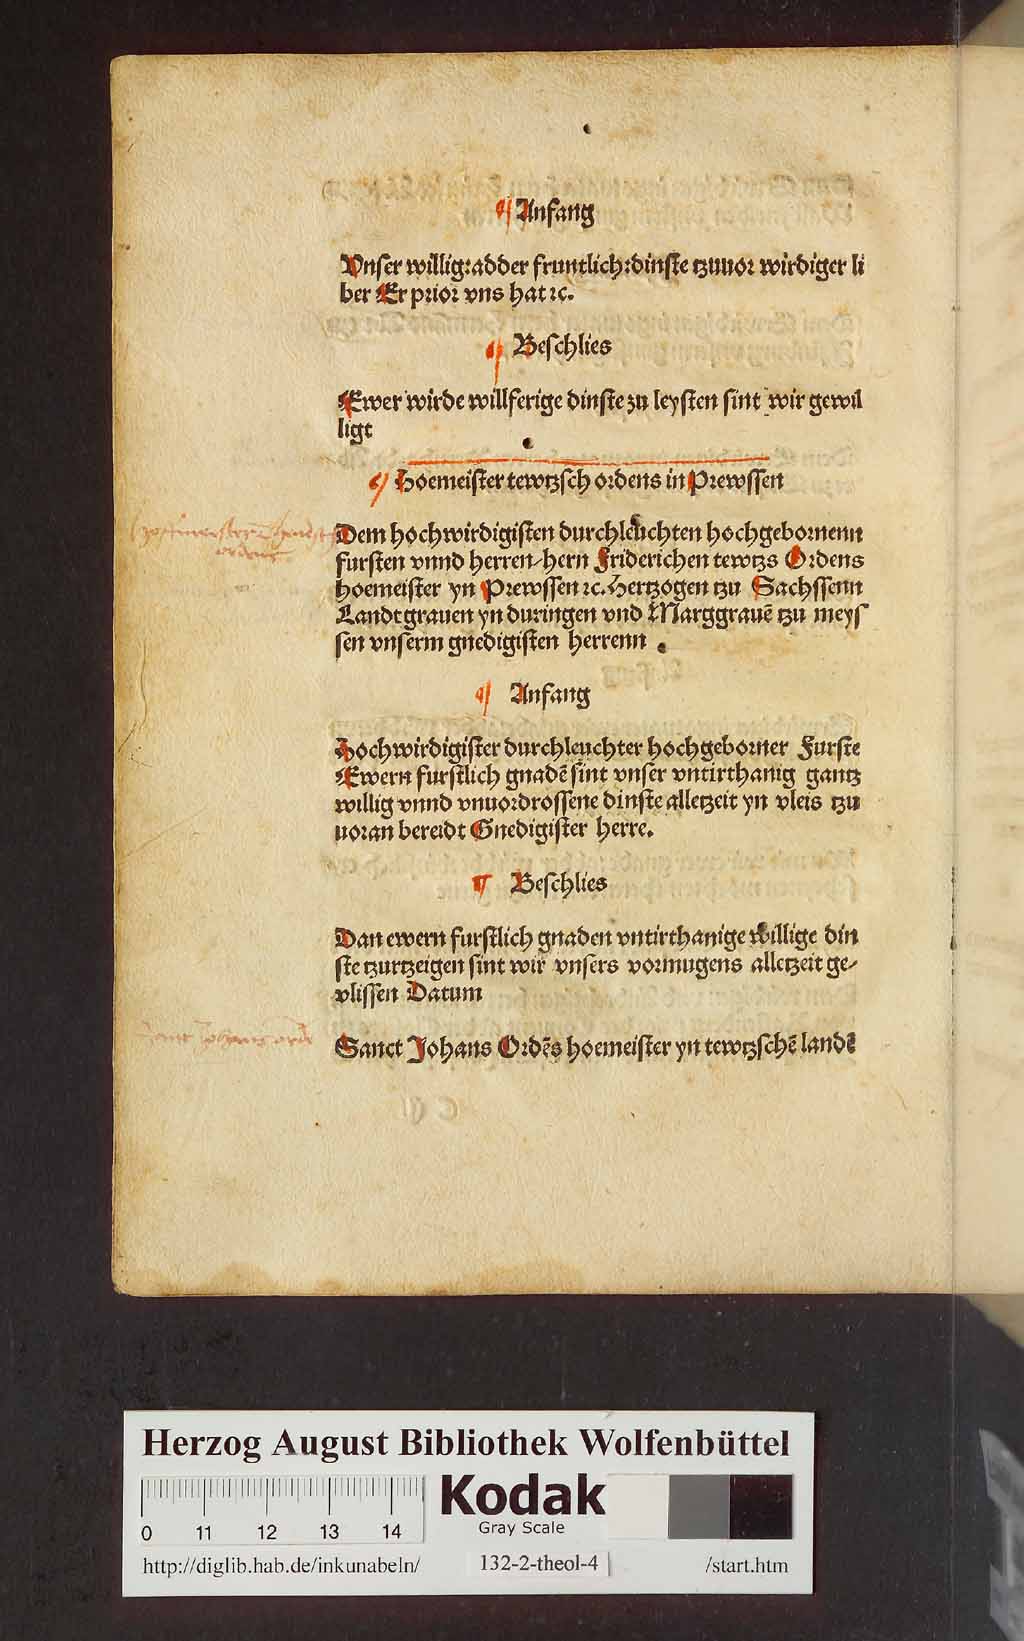 Anfang
Vnser willig:adder fruntlich:dinste tzuuor wirdiger li
ber Er prior vns hat ⁊c.
Beschlies
Ewer wirde willferige dinste zu leysten sint wir gewil
ligt
Hoemeister tewtzsch ordens in Prewssen
Dem hochwirdigisten durchleuchten hochgebornenn
fursten vnnd herren/hern Friderichen tewtzs Ordens
hoemeister yn Prewssen ⁊c. Hertzogen tzu Sachssenn
Landtgrauen yn duringen vnd Marggrauē tzu meys
sen vnserm gnedigisten herrenn .
ordens
Anfang
Hochwirdigister durchleuchter hochgeborner Furste
Ewern furstlich gnadē sint vnser vntirthanig gantz
willig vnnd vnuordrossene dinste alletzeit yn vleis tzu
uoran bereidt Gnedigister herre.
Beschlies
Dan ewern furstlich gnaden vntirthanige willige din
ste tzurtzeigen sint wir vnsers vormugens alletzeit ge/
vlissen Datum
Sanct Johans Ordēs hoemeister yn tewtzschē landē
Herzog August Bibliothek Wolfenbüttel
Kodak
Gray Scale
0 11 12 13 14
http://diglib.hab.de/inkunabeln/ 132-2-theol-4 /start.htm